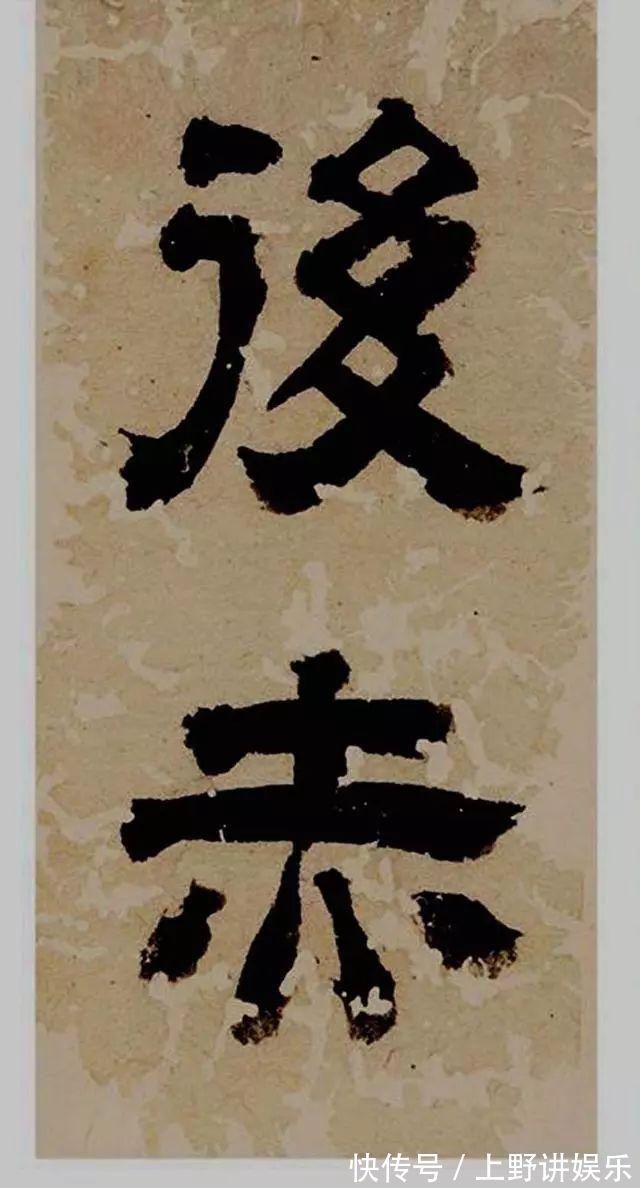 後
赤
快传号／上野讲娱乐